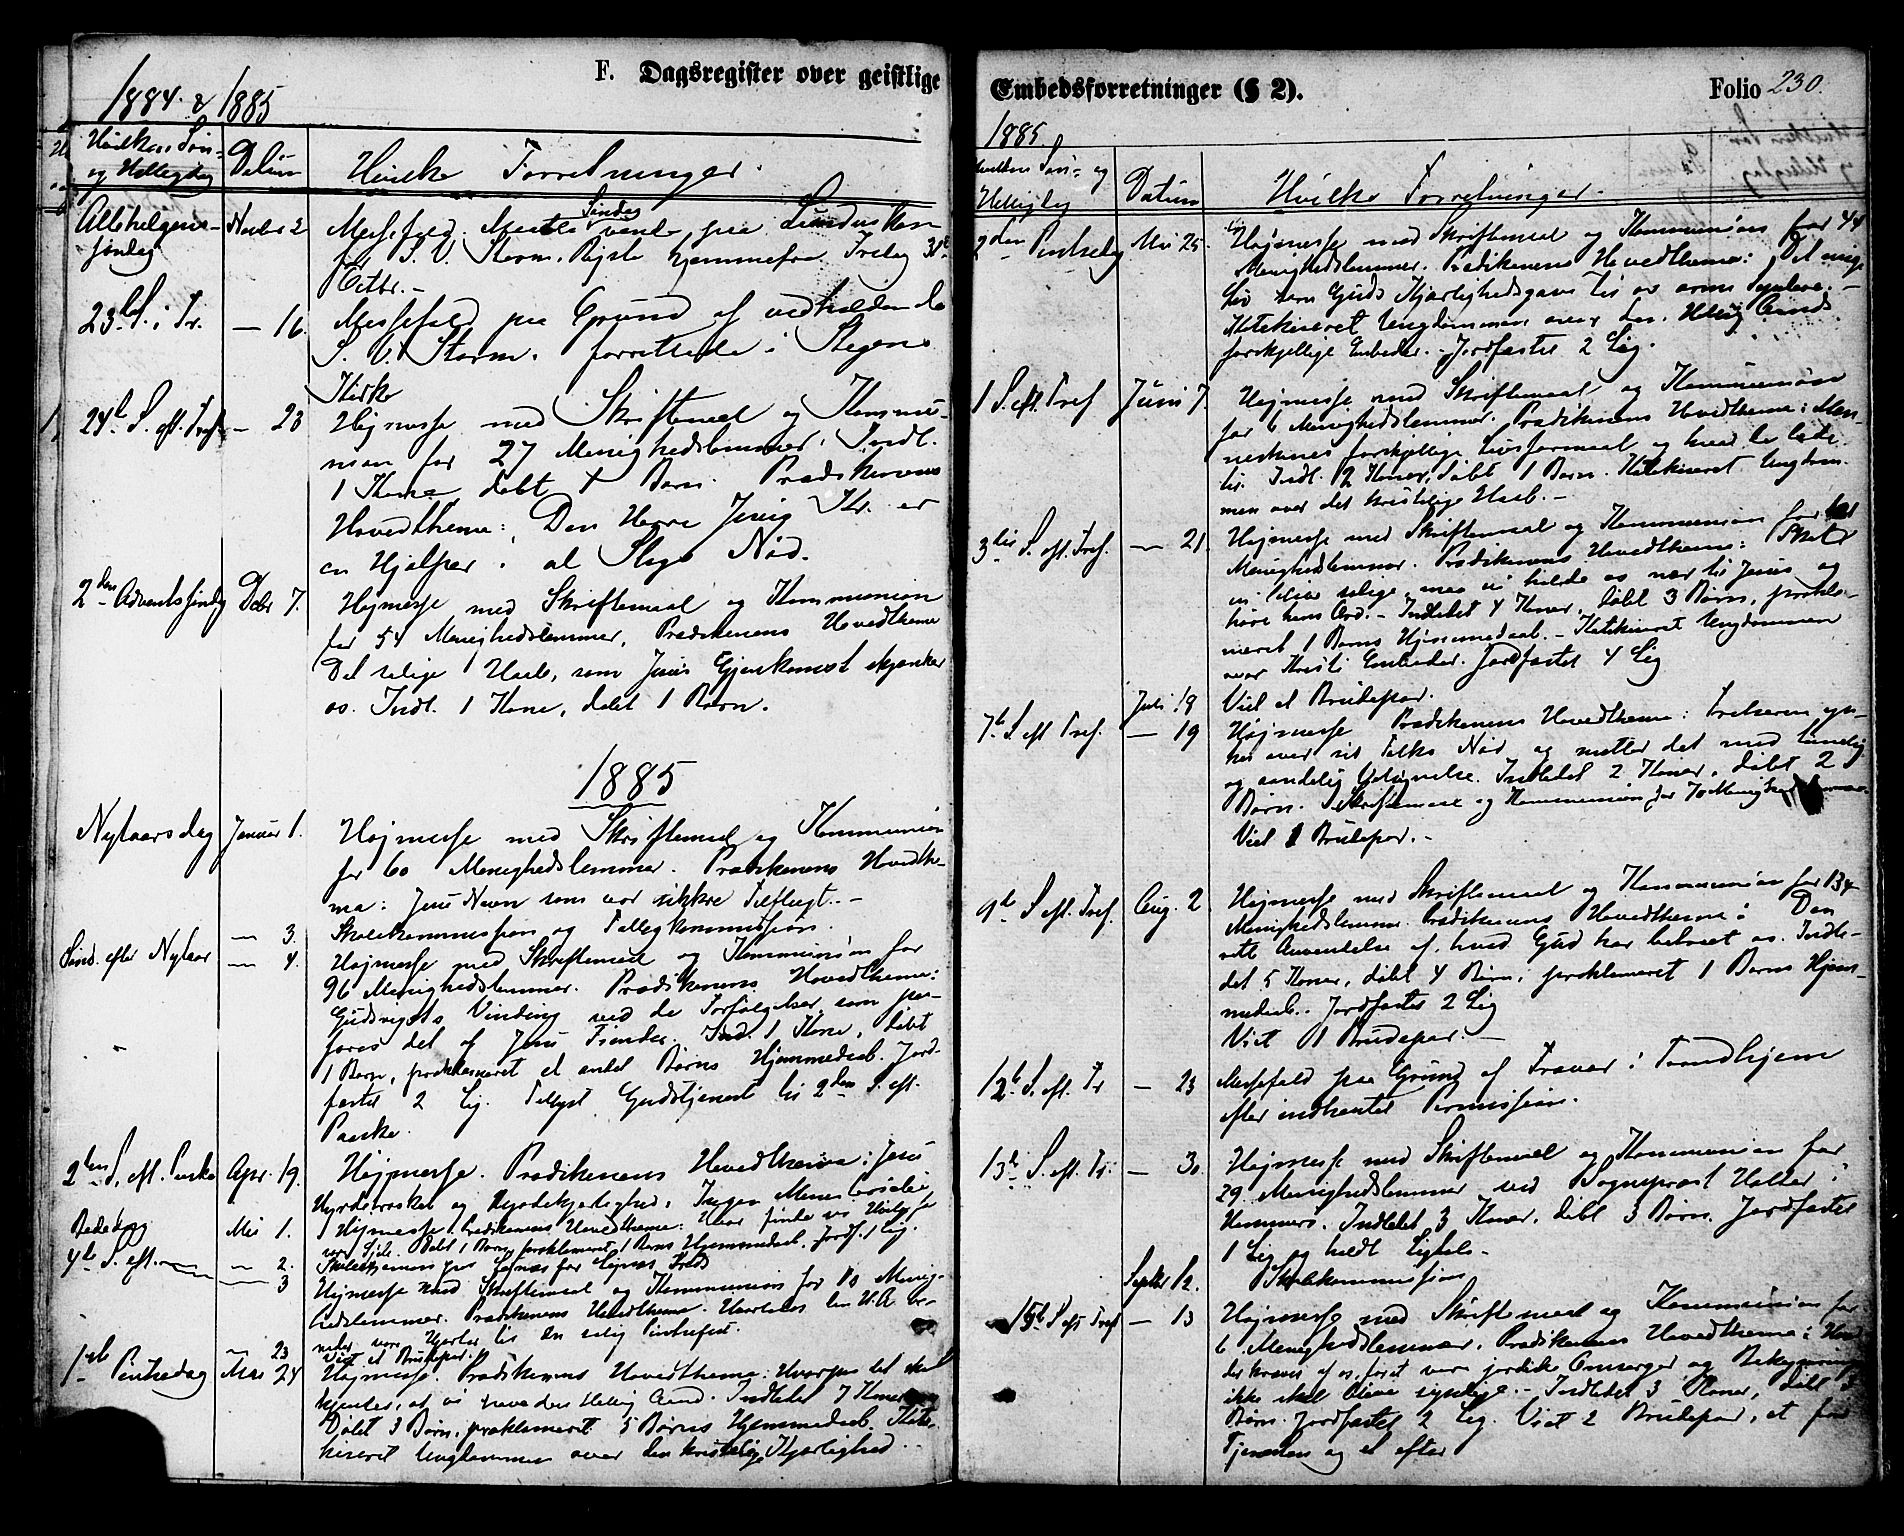 F. Dagsregister over geistlige
1884 & 1885
Hvilken Søn-
og Helligdag
Datum
Hvilke Forretninger.
Allehelgens-
søndag
Novbr 2
Messefald.
for S. V. Storm. Rejste hjemmefra Fredag 31te
Octbr. –
23de S. i Tr.
— 16.
Messefald paa Grund af vedholdende
S. V. Storm. forrettede i Stegens
Kirke
24de S. eft. Tref.
— 23
Højmesse med Skriftemaal og Kommu-
nion for 27 Menighedslemmer. Indl.
1 Kone døbt 4 Børn. Prædikenens
Hovedthema: Den Herre Jesus Kr. er
en Hjælper i al Slags Nød.
2den Adventssøndag
Debr 7.
Højmesse med Skriftemaal og Kommunion
for 54 Menighedslemmer, Prædikenens Hovedthema
Det salige Haab, som Jesus Gjenkomst skjænker
os. Indl. 1 Kone, døbt 1 Barn.
1885
Nytaarsdag
Januar 1.
Højmesse med Skriftemaal og Kommunion
for 60 Menighedslemmer. Prædikenens Hovedthe-
ma: Jesu Navn som vor sikkre Tilflugt. –
— 3.
Skolekommission og Tilsygkommission.
Sønd. efter Nytaar
— 4.
Højmesse med Skriftemaal og Kommunion for
96 Menighedslemmer. Prædikenens Hovedthema:
Gudsrigets Vinding ved de Forfølgelser, som paa-
føres det af Jesu Fiender. Ind. 1 Kone, døbt
1 Barn, proklameret et andet Barns Hjemmedaab. Jord-
fæstet 2 Lig. Tillyst Gudstjenest til 2den S. eft.
Paaske.
2den S. eft. Paaske
Apr. 19.
Højmesse. Prædikenens Hovedthema: Jesu
Hyrdetroskab og Hyrdekjærlighed.
Bededag
Mai 1.
Højmesse. Prædikenens Hovedthema: Hvor finde vi Hvile for
vor Sjæl. Døbt 1 Barn, proklameret 1 Barns Hjemmedaab. Jordf. 1 Lig.
4de S. eft.
— 2.
— 3
Højmesse med Skriftemaal og Kommunion for 10 Menig-
hedslemmer. Prædikenens Hovedthema. Hvorledes den H. A. be-
reder vore Hjerter til en salig Pintsefest.
— 23
Viet et Brudepar.
1ste Pintsedag
Mai 24
Højmesse. Prædikenens Hovedthema: Hvorpaa det skal
kjendes, at vi have den Hellig Aand. Indledet 7 Koner
Døbt 3 Børn, proklameret 5 Børns Hjemmedaab. Kate-
kiseret Ungdommen over den kristelige Kjærlighed.
Embedsforretninger (§ 2).
Folio 230.
1885.
Hvilken Søn- og
Helligdag
Datum
Hvilke Forretninger.
2den Pintsedag
Mai 25.
Højmesse med Skriftemaal og Kommunion for 44
Menighedslemmer. Prædikenens Hovedthema: Det evige
Liv som Guds Kjærlighedsgave til os arme Syndere. –
Katekiseret Ungdommen over den Hellig Aands
forskjellige Embeder. – Jordfæstet 2 Lig.
1 S. eft. Tref
Juni 7.
Højmesse med Skriftemaal og Kommunion
for 6 Menighedslemmer. Prædikenens Hovedthema: Men-
neskenes forskjellige Livsformaal og hvad de lede
til. Indl. 2 Koner, døbt 1 Barn. Katekiseret Ungdom-
men over det kristelige Haab. –
3die S. eft. Tref.
— 21.
Højmesse med Skriftemaal og Kommunion for
Menighedslemmer. Prædikenens Hovedthema: Skal
vi blive salige, maa vi holde os nær til Jesus og
høre hans Ord. – Indledet 4 Koner, døbt 3 Børn, prokla-
meret 1 Barns Hjemmedaab. – Katekiseret Ungdommen
over Kristi Embeder. Jordfæstet 4 Lig
Juli 18
Viet et Brudepar.
7de S. eft Tref.
— 19
Højmesse Prædikenens Hovedthema: Frelseren yn-
kes over sit Folks Nød og mætter det med timelig
og aandelig Velsignelse. Indledet 2 Koner, døbt 2
Børn. Skriftemaal og Kommunion for 70
Viet 1 Brudepar. –
9de S. eft. Tref.
Aug. 2
Højmesse med Skriftemaal og Kommunion for 134
Menighedslemmer. Prædikenens Hovedthema: Den
rette Anvendelse af, hvad Gud har betroet os. Indle-
det 5 Koner, døbt 4 Børn; proklameret 1 Barns Hjem-
medaab. Jordfæstet 2 Lig
Viet 1 Brudepar. –
12te S. eft. Tr
— 23
Messefald paa Grund af Fravær i Trondhjem
efter indhentet Permission.
13de S. eft. Tr.
— 30
Højmesse med Skriftemaal og Kommunion for
29 Menighedslemmer ved Sogneprest Halder i
Hammerø. Indledet 3 Koner, døbt 3 Børn. Jordfæstet
1 Lig og holdt Ligtale –
Septbr 12.
Skolekommission
15de S eft Tref
— 13
Højmesse med Skriftemaal og Kommunion for
6 Menighedslemmer. Prædikenens Hovedthema: Hvad
der kræves af os, forat vore jordiske Omsorger og Bekymringer
ikke skal blive syndige. – Indledet 3 Koner, døbt 3
Børn. Jordfæstet 2 Lig. Viet 2 Brudepar, et før
Tjenesten og et efter